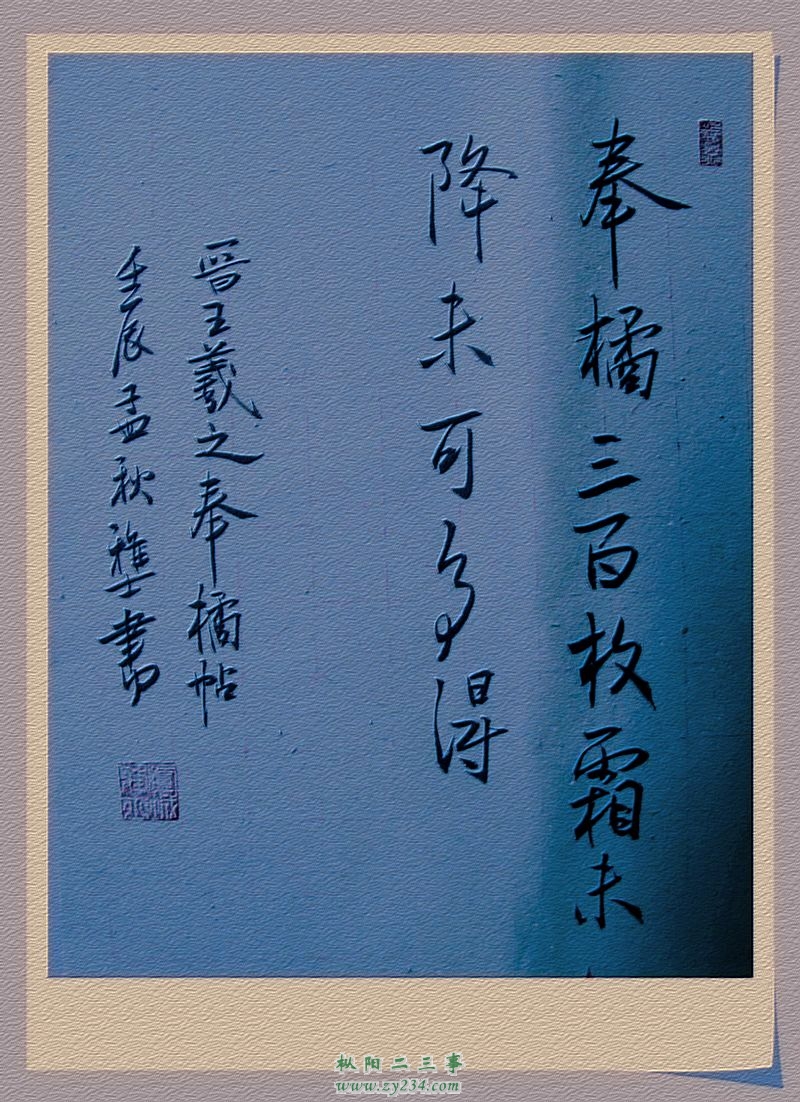 奉橘三百枚霜未
降未可多得
晋王羲之奉橘帖
壬辰孟秋雅士書
枞阳二三事
www.zy234.com